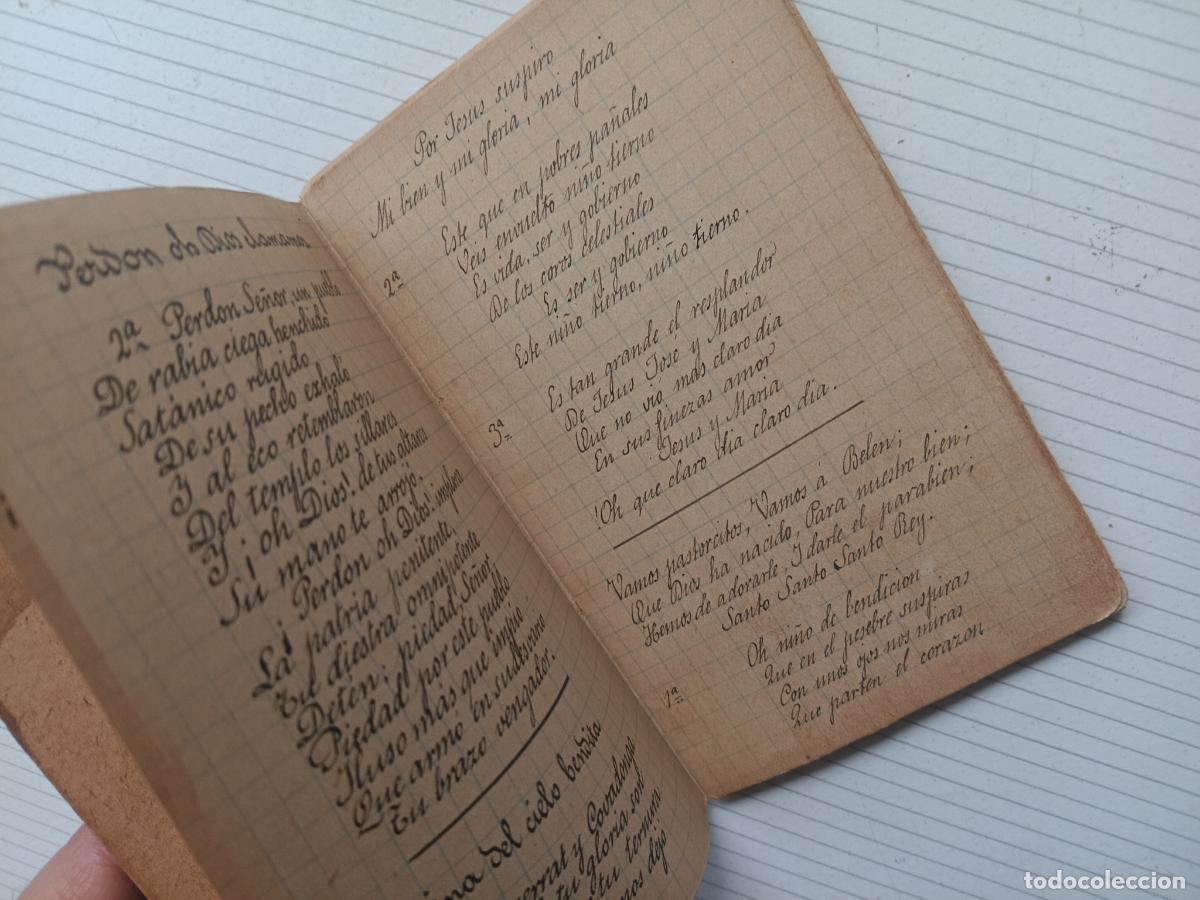 Perdon oh Dios clamamos
2ª Perdon Señor, un pueblo
De rabia ciega henchido
Satánico rugido
De su pecho exhaló
Y al eco retemblaron
Del templo los sillares
Y ¡oh Dios! de tus altares
Su mano te arrojó.
¡Perdon oh Dios! implora
La patria penitente,
Tu diestra omnipotente
Deten; piedad, Señor
Piedad por este pueblo
Iluso más que impio
Que armó en su desvario
Tu brazo vengador.
del cielo bendita
y Covadonga
tu gloria son
tu ternura
dejó
Por Jesus suspiro
Mi bien y mi gloria, mi gloria
2ª Este que en pobres pañales
Veis envuelto niño tierno
Es vida, ser y gobierno
De los coros celestiales
Es ser y gobierno
Este niño tierno, niño tierno.
3ª Es tan grande el resplandor
De Jesus Jose y Maria
Que no vió mas claro dia
En sus finezas amor
Jesus y Maria
!Oh que claro dia claro dia.
Vamos pastorcitos, Vamos á Belen;
Que Dios ha nacido, Para nuestro bien;
Hemos de adorarle, I darle el parabien;
Santo Santo Santo Rey.
1ª Oh niño de bendicion
Que en el pesebre suspiras
Con unos ojos nos miras
Que parten el corazon
todocoleccion